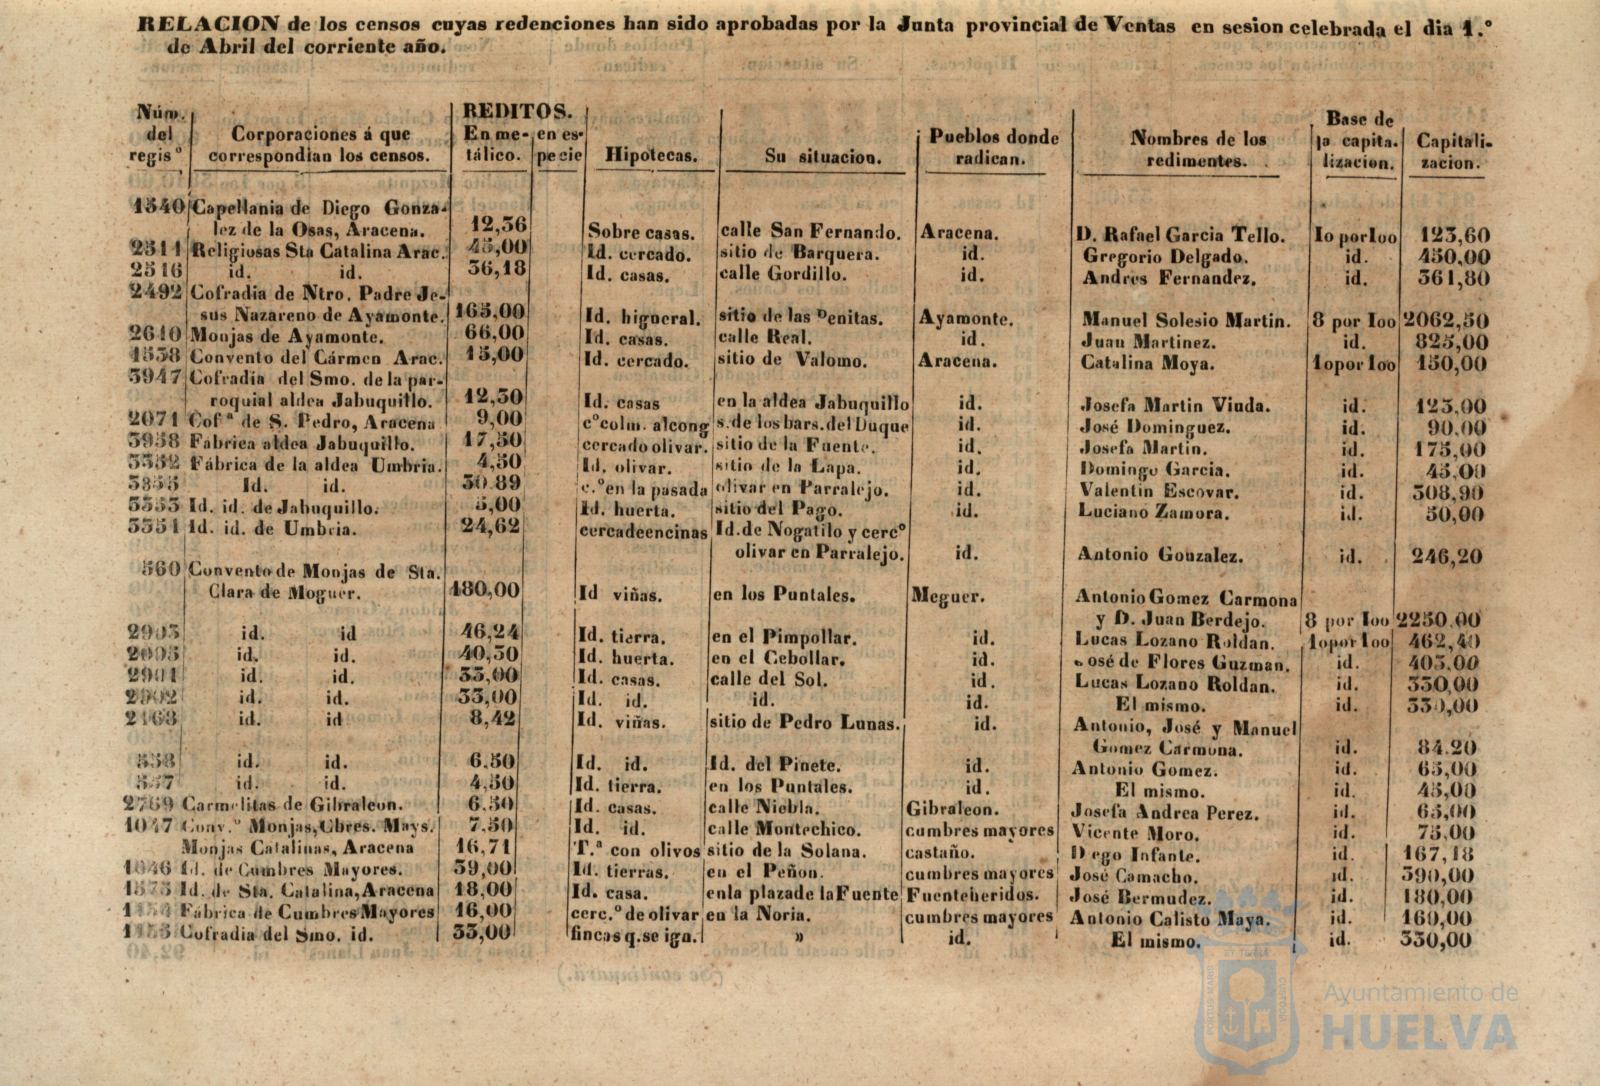 RELACION de los censos cuyas redenciones han sido aprobadas por la Junta provincial de Ventas en sesion celebrada el dia 1.º
de Abril del corriente año.
Núm. del regisº Corporaciones á que correspondian los censos. REDITOS. En metálico. en especie Hipotecas. Su situacion. Pueblos donde radican. Nombres de los redimentes. Base de la capitalizacion. Capitalizacion.
1540 Capellania de Diego Gonza-
lez de la Osas, Aracena. 12,36 Sobre casas. calle San Fernando. Aracena. D. Rafael Garcia Tello. 10 por 100 123,60
2511 Religiosas Sta Catalina Arac. 45,00 Id. cercado. sitio de Barquera. id. Gregorio Delgado. id. 450,00
2516 id. id. 36,18 Id. casas. calle Gordillo. id. Andres Fernandez. id. 361,80
2492 Cofradia de Ntro. Padre Je-
sus Nazareno de Ayamonte. 165,00 Id. higueral. sitio de las Denitas. Ayamonte. Manuel Solesio Martin. 8 por 100 2062,50
2610 Monjas de Ayamonte. 66,00 Id. casas. calle Real. id. Juan Martinez. id. 825,00
1538 Convento del Cármen Arac. 15,00 Id. cercado. sitio de Valomo. Aracena. Catalina Moya. 10 por 100 150,00
3947 Cofradia del Smo. de la par-
roquial aldea Jabuquillo. 12,30 Id. casas en la aldea Jabuquillo id. Josefa Martin Viuda. id. 123,00
2071 Cofª de S. Pedro, Aracena 9,00 cº colm. alcong s. de los bars. del Duque id. José Dominguez. id. 90,00
3958 Fábrica aldea Jabuquillo. 17,50 cercado olivar. sitio de la Fuente. id. Josefa Martin. id. 175,00
3352 Fábrica de la aldea Umbria. 4,50 Id. olivar. sitio de la Lapa. id. Domingo Garcia. id. 45,00
Id. id. 30.89 c.º en la pasada olivar en Parralejo. id. Valentin Escovar. id. 308,90
3353 Id. id. de Jabuquillo. 5,00 Id. huerta. sitio del Pago. id. Luciano Zamora. id. 50,00
3351 Id. id. de Umbria. 24,62 cercadeencinas Id. de Nogatilo y cercº
olivar en Parralejo. id. Antonio Gonzalez. id. 246,20
560 Convento de Monjas de Sta.
Clara de Moguer. 180,00 Id viñas. en los Puntales. Meguer. Antonio Gomez Carmona
y D. Juan Berdejo. 8 por 100 2250,00
2903 id. id 46,24 Id. tierra. en el Pimpollar. id. Lucas Lozano Roldan. 10 por 100 462,40
id. id. 40,30 Id. huerta. en el Cebollar. id. José de Flores Guzman. id. 403,00
2901 id. id. 33,00 Id. casas. calle del Sol. id. Lucas Lozano Roldan. id. 330,00
2902 id. id. 33,00 Id. id. id. id. El mismo. id. 330,00
id. id 8,42 Id. viñas. sitio de Pedro Lunas. id. Antonio, José y Manuel
Gomez Carmona. id. 84.20
558 id. id. 6.50 Id. id. Id. del Pinete. id. Antonio Gomez. id. 65,00
557 id. id. 4,50 Id. tierra. en los Puntales. id. El mismo. id. 45,00
2769 Carmelitas de Gibraleon. 6.50 Id. casas. calle Niebla. Gibraleon. Josefa Andrea Perez. id. 65,00
1047 Conv.º Monjas, Cbres. Mays. 7.50 Id. id. calle Montechico. cumbres mayores Vicente Moro. id. 75,00
Monjas Catalinas, Aracena 16,71 T.ª con olivos sitio de la Solana. castaño. Diego Infante. id. 167,18
1046 Id. de Cumbres Mayores. 39,00 Id. tierras. en el Peñon. cumbres mayores José Camacho. id. 390,00
1573 Id. de Sta. Catalina, Aracena 18,00 Id. casa. enla plaza de la Fuente Fuenteheridos. José Bermudez. id. 180,00
Fábrica de Cumbres Mayores 16,00 cerc.º de olivar en la Noria. cumbres mayores Antonio Calisto Maya. id. 160,00
Cofradia del Smo. id. 33,00 fincas q. se ign. » id. El mismo. id. 330,00
Ayuntamiento de
HUELVA